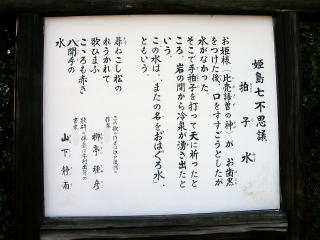 姫島七不思議
拍子水
お姫様(比売語曽の神)が お歯黒
をつけた後、口をすすごうとしたが
水がなかった。
そこで手拍子を打って天に祈ったと
ころ、岩の間から冷泉が湧き出たと
いう。
この水は、またの名を「おはぐろ水」
ともいう。
尋ねこし松の
れうかれて
歌ひまふ
こころも赤き
水
柳亭種彦
山下静雨